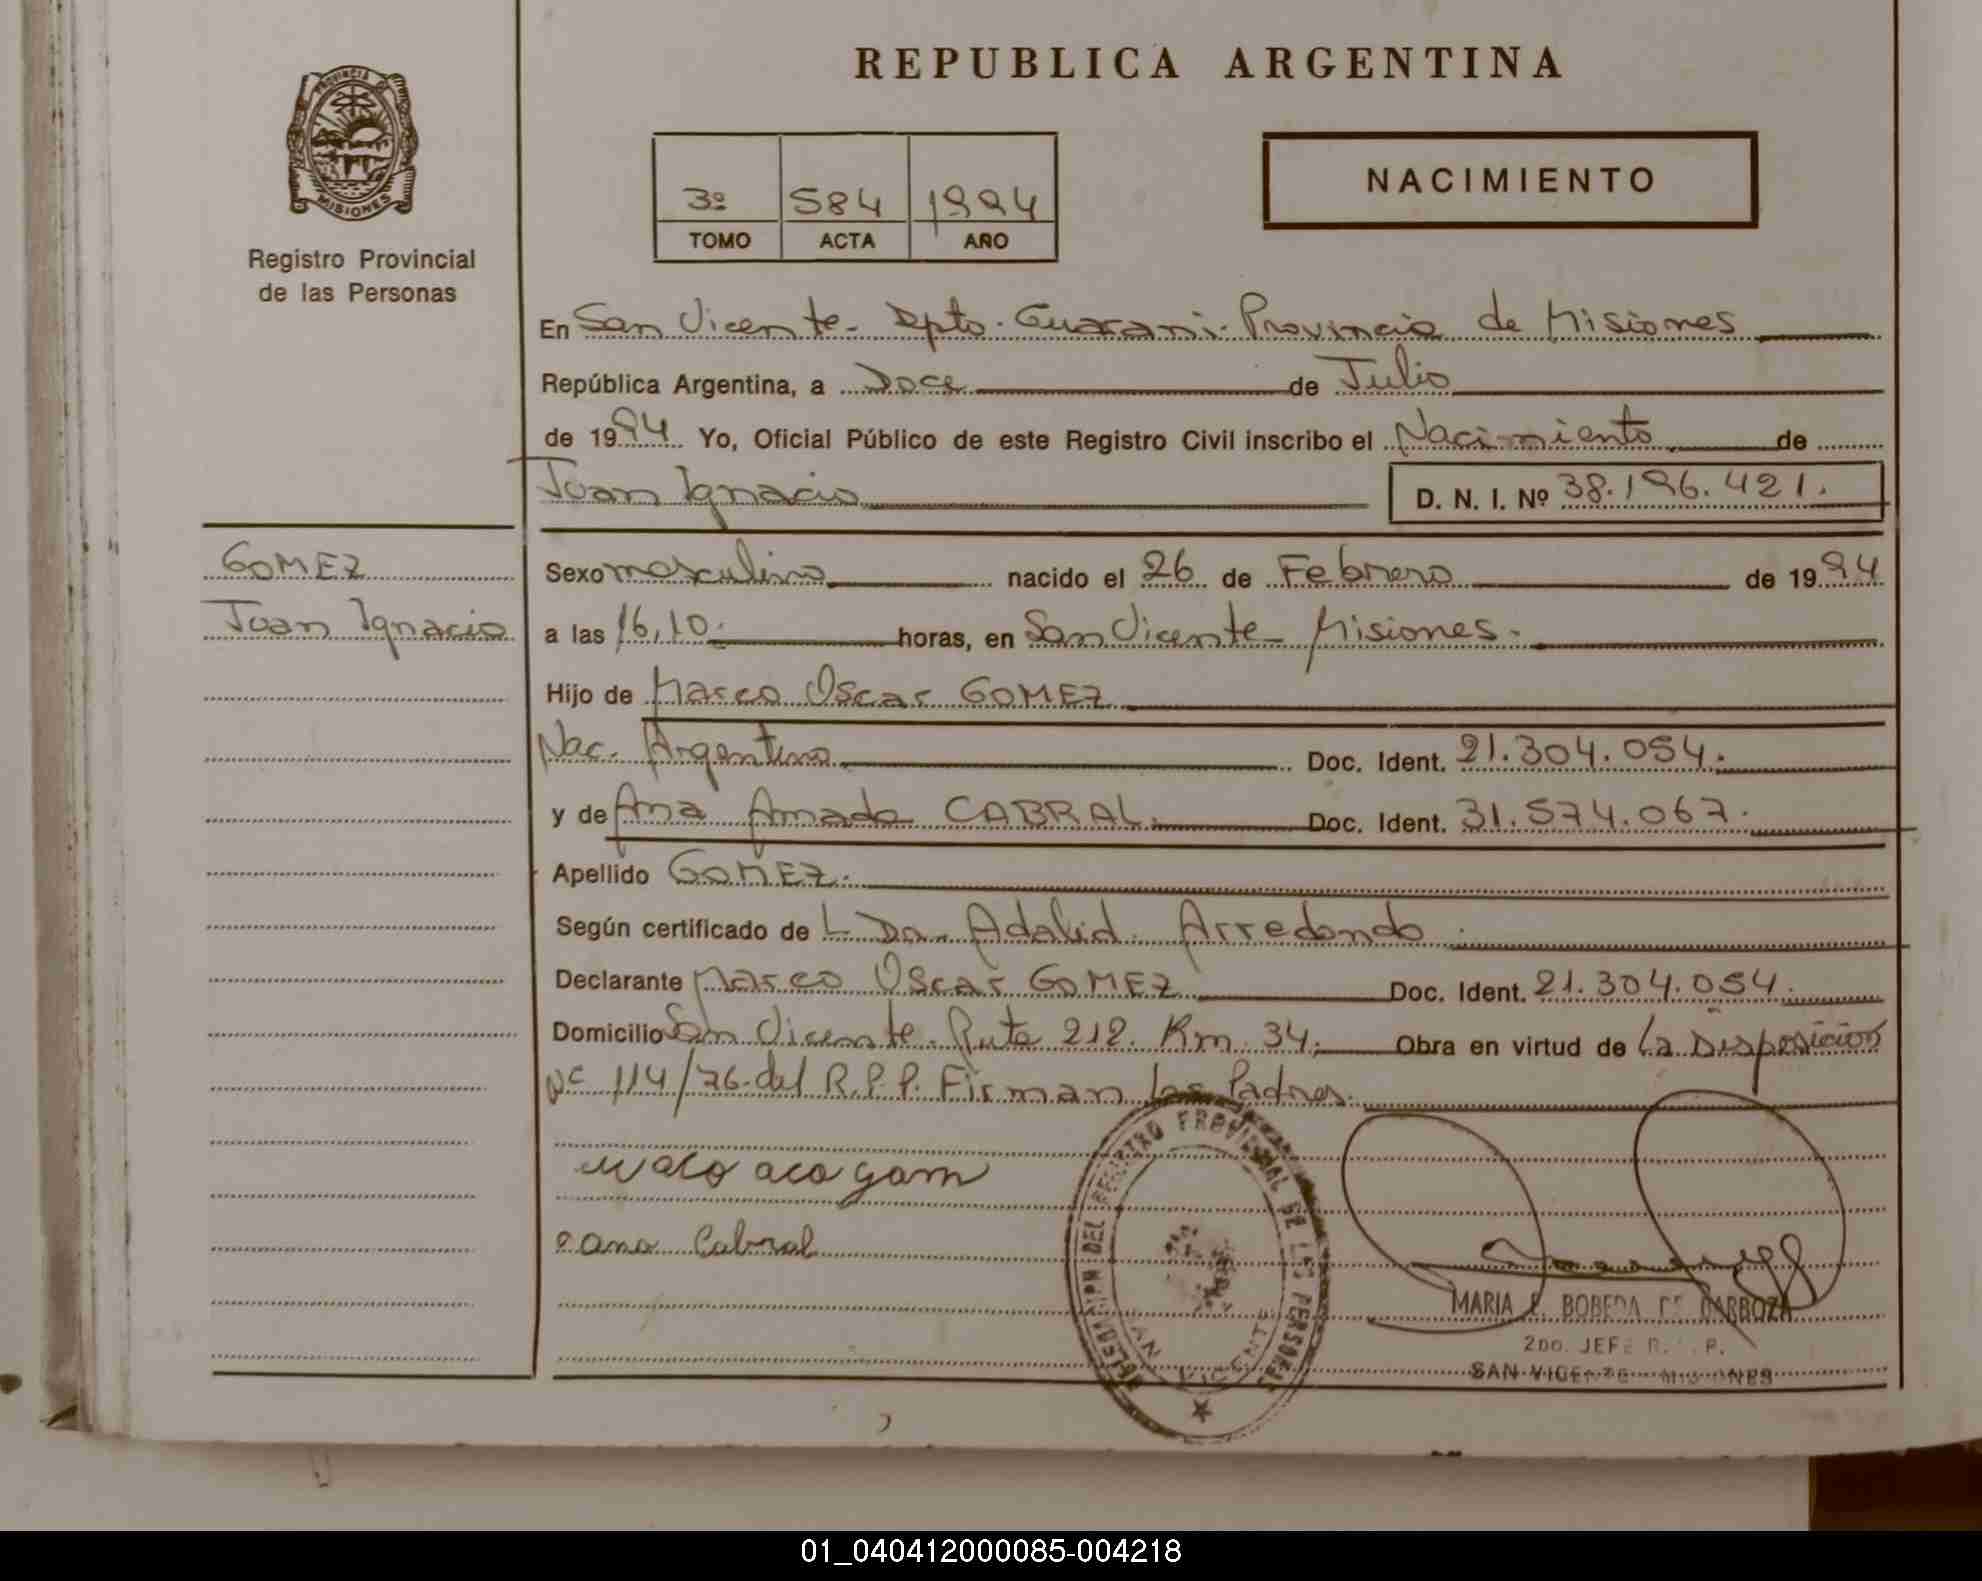 REPUBLICA ARGENTINA
PROVINCIA DE
MISIONES
Registro Provincial
de las Personas
3º 584 1994
TOMO ACTA AÑO
NACIMIENTO
En San Vicente - Dpto. Guarani. Provincia de Misiones
República Argentina, a Doce de Julio
de 1994 Yo, Oficial Público de este Registro Civil inscribo el Nacimiento de
Juan Ignacio D. N. I. Nº 38.196.421.
GOMEZ
Juan Ignacio
Sexo masculino nacido el 26 de Febrero de 1994
a las 16,10. horas, en San Vicente Misiones.
Hijo de Marco Oscar GOMEZ
Nac. Argentino Doc. Ident. 21.304.054.
y de Ana Amada CABRAL. Doc. Ident. 31.574.067.
Apellido GOMEZ.
Según certificado de L Da. Adalid. Arredondo.
Declarante Marco Oscar GOMEZ Doc. Ident. 21.304.054.
Domicilio San Vicente. Ruta 212. Km. 34. Obra en virtud de La Disposición
Nº 114/76. del R.P.P. Firman los Padres.
ana Cabral
REGISTRO PROVINCIAL DE LAS PERSONAS
SAN VICENTE
MARIA E. BOBEDA DE BARBOZA
2DO. JEFE R. P.
SAN VICENTE MISIONES
01_040412000085-004218